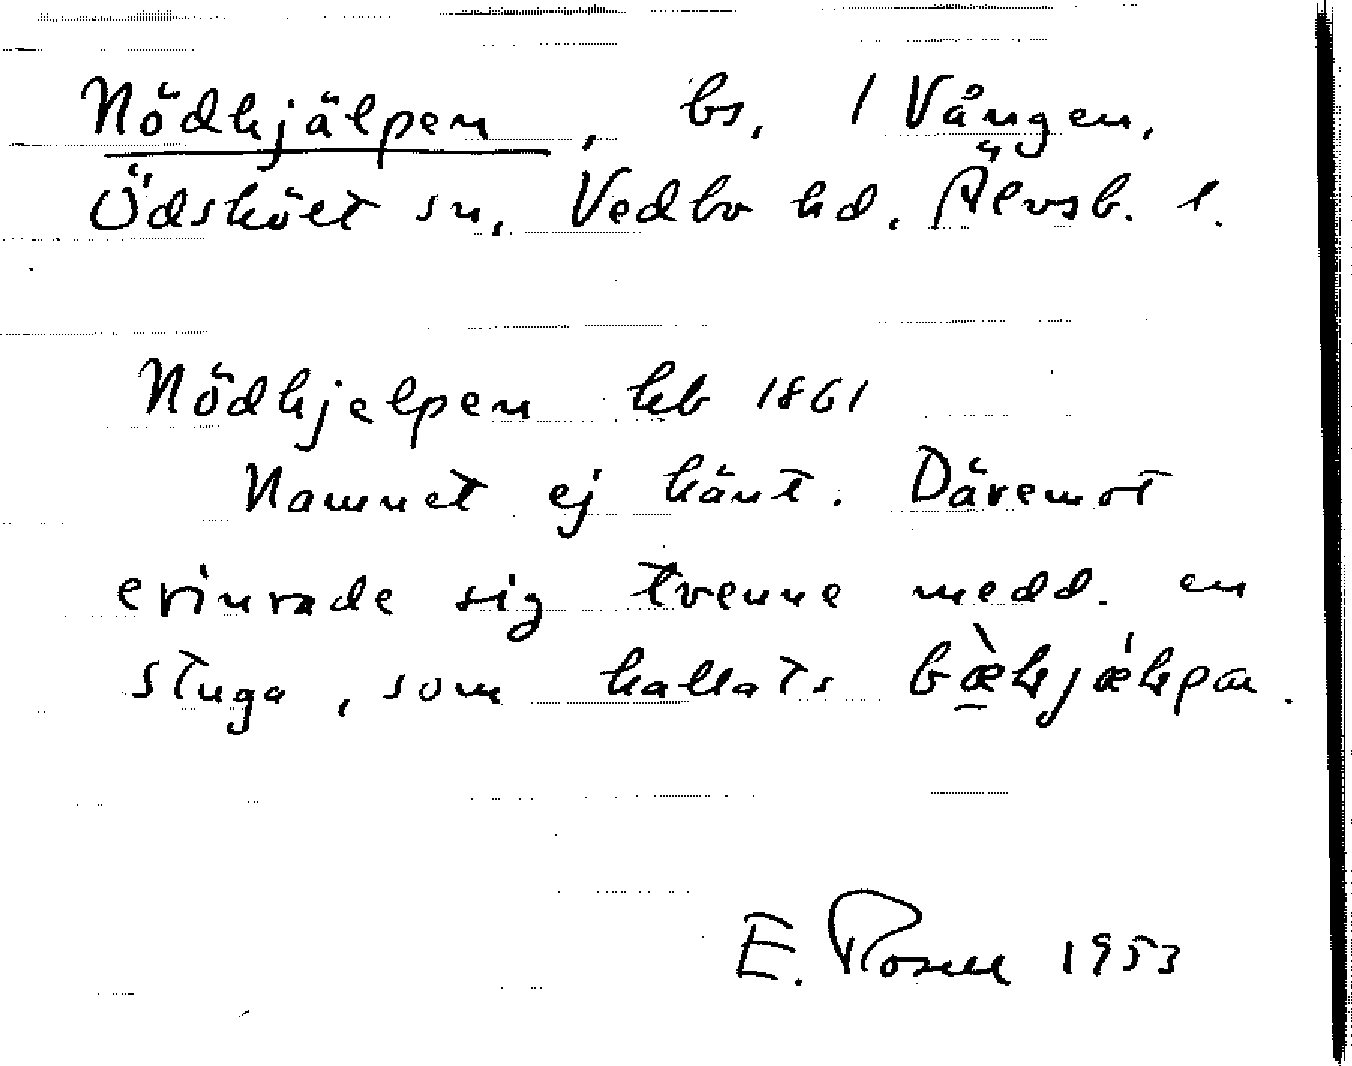 Nödhjälpen, bs, 1 Vången,
Ödskölt sn, Vedbo hd. Älvsb. l.
Nödhjelpen hb 1861
Namnet ej känt. Däremot
erinrade sig tvenne medd. en
stuga, som kallats
E. Rosell 1953